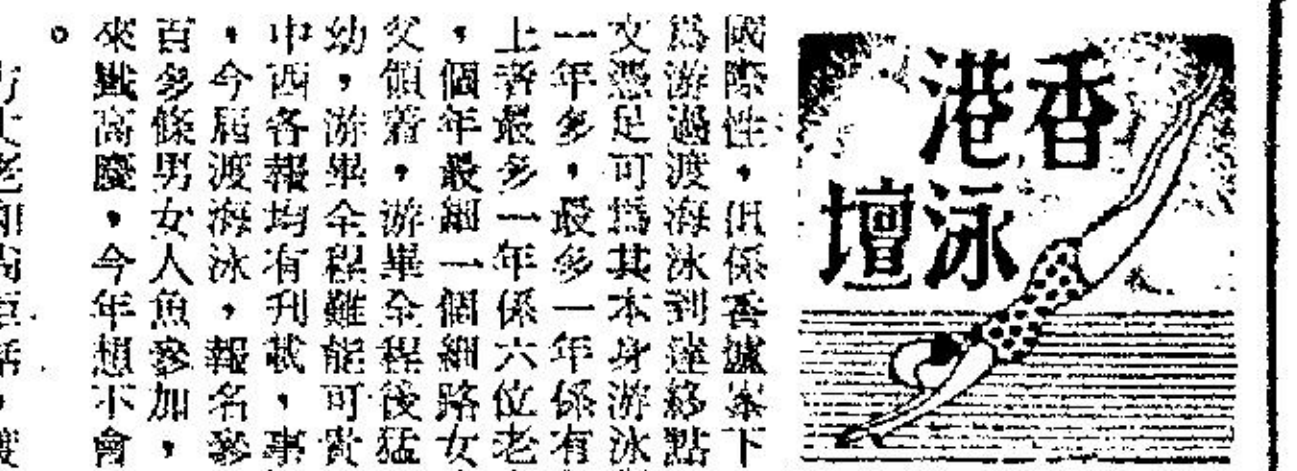 香港
泳壇
國際性，俱係據下
爲游過渡海泳到達終點
文憑足可爲其本身游泳
一年多，最多一年係有
上者最多一年係六位老
，個年最細一個細路女
父領着，游畢全程後猛
幼，游畢全程難能可貴
中西各報均有刊載，事
，今屆渡海泳，報名參
百多條男女人魚參加，
來高慶，今年想不會
。